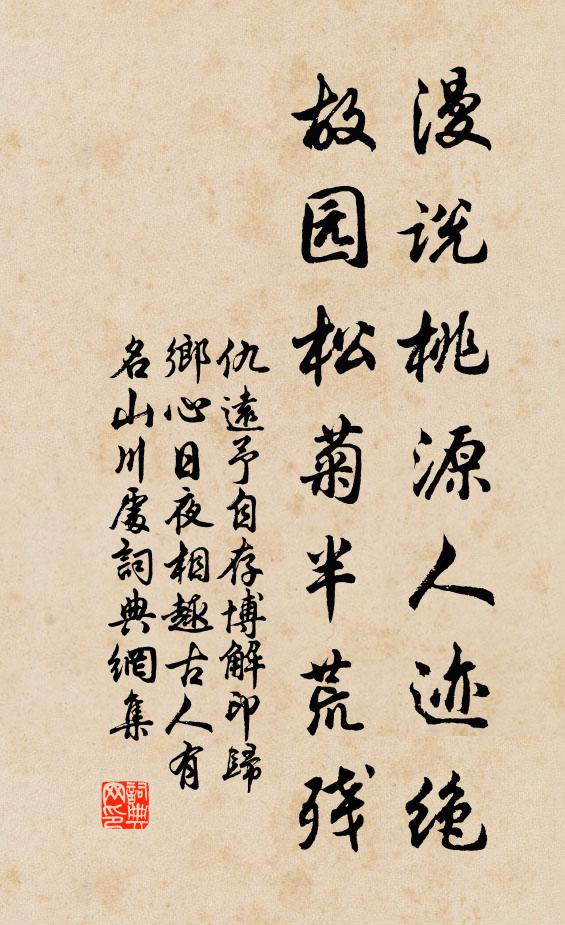 漫说桃源人迹绝
故园松菊半荒残
仇遠予自存博解印歸
鄉心日夜相趣古人有
名山川處詞典網集
詞典网印